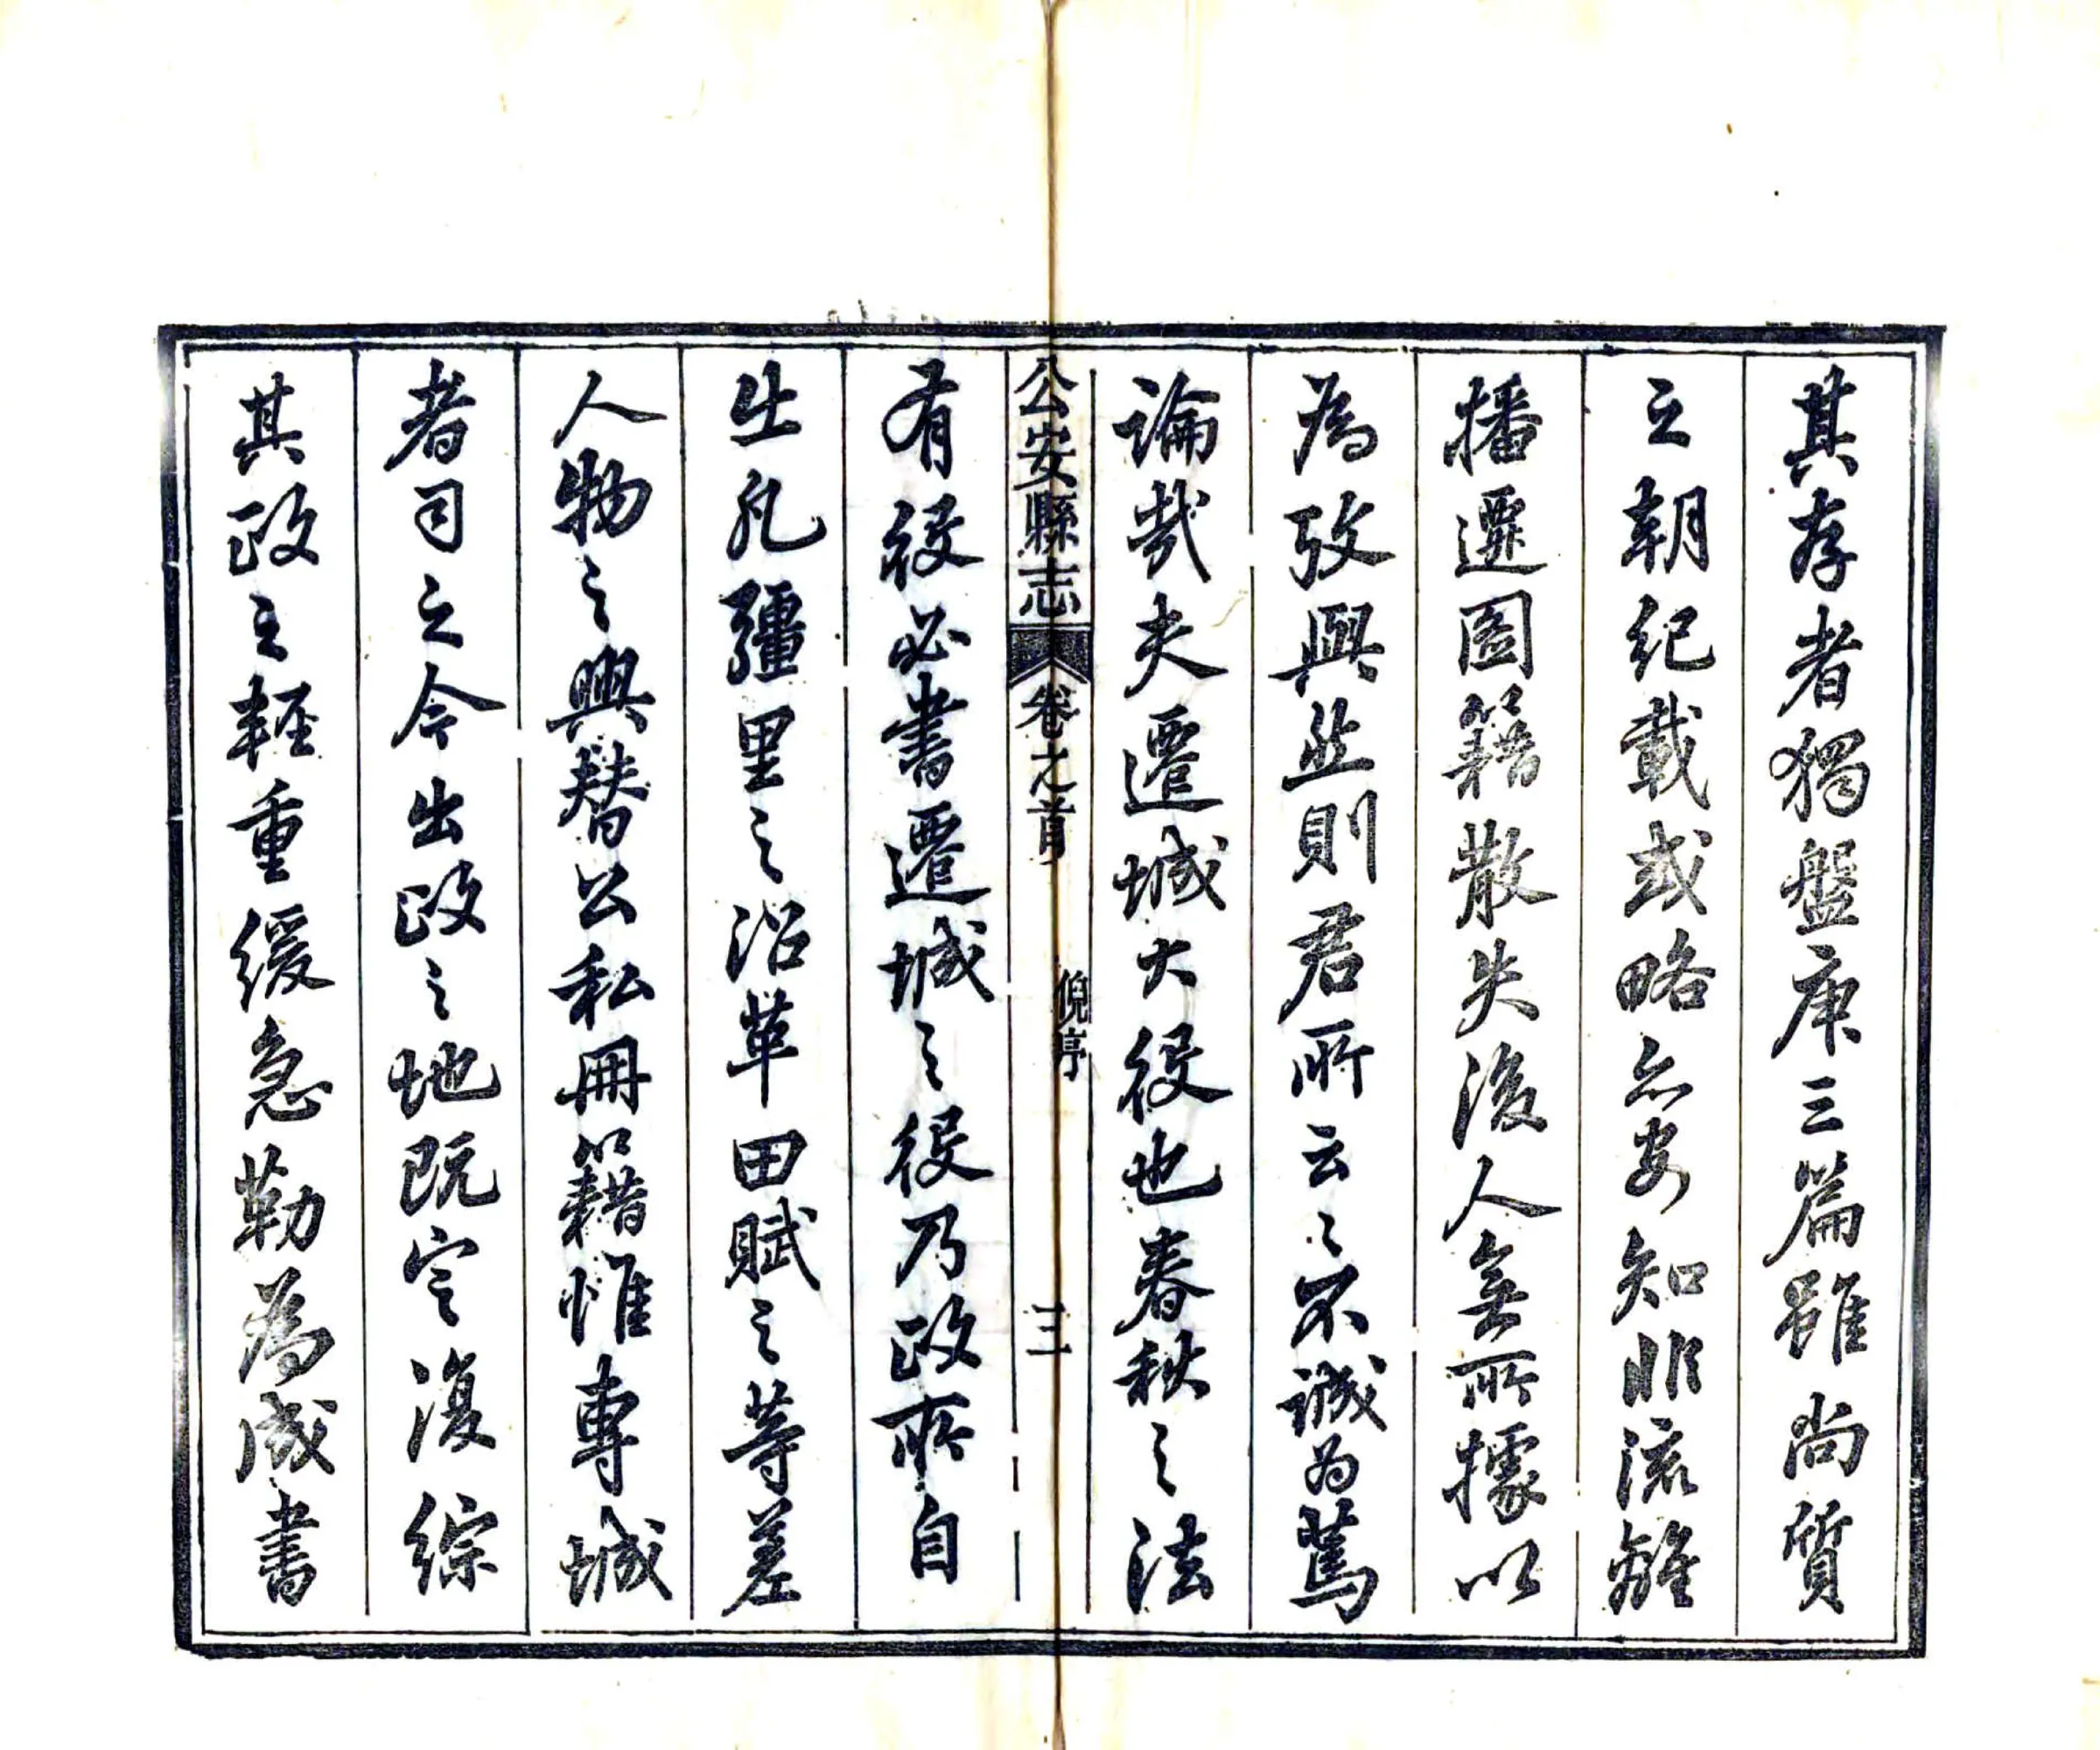 其存者獨盤庚三篇雖尚質
之朝紀載或略亦安知非流離
播遷圖籍散失後人無所據以
為攷與然則君所云云不誠為篤
論哉夫遷城大役也春秋之法
公安縣志 卷之首 倪序 三
有役必書遷城之役乃政所自
出凡疆里之沿革田賦之等差
人物之興替公私冊籍惟專城
者司之今出政之地既定復綜
其政之輕重緩急勒為成書